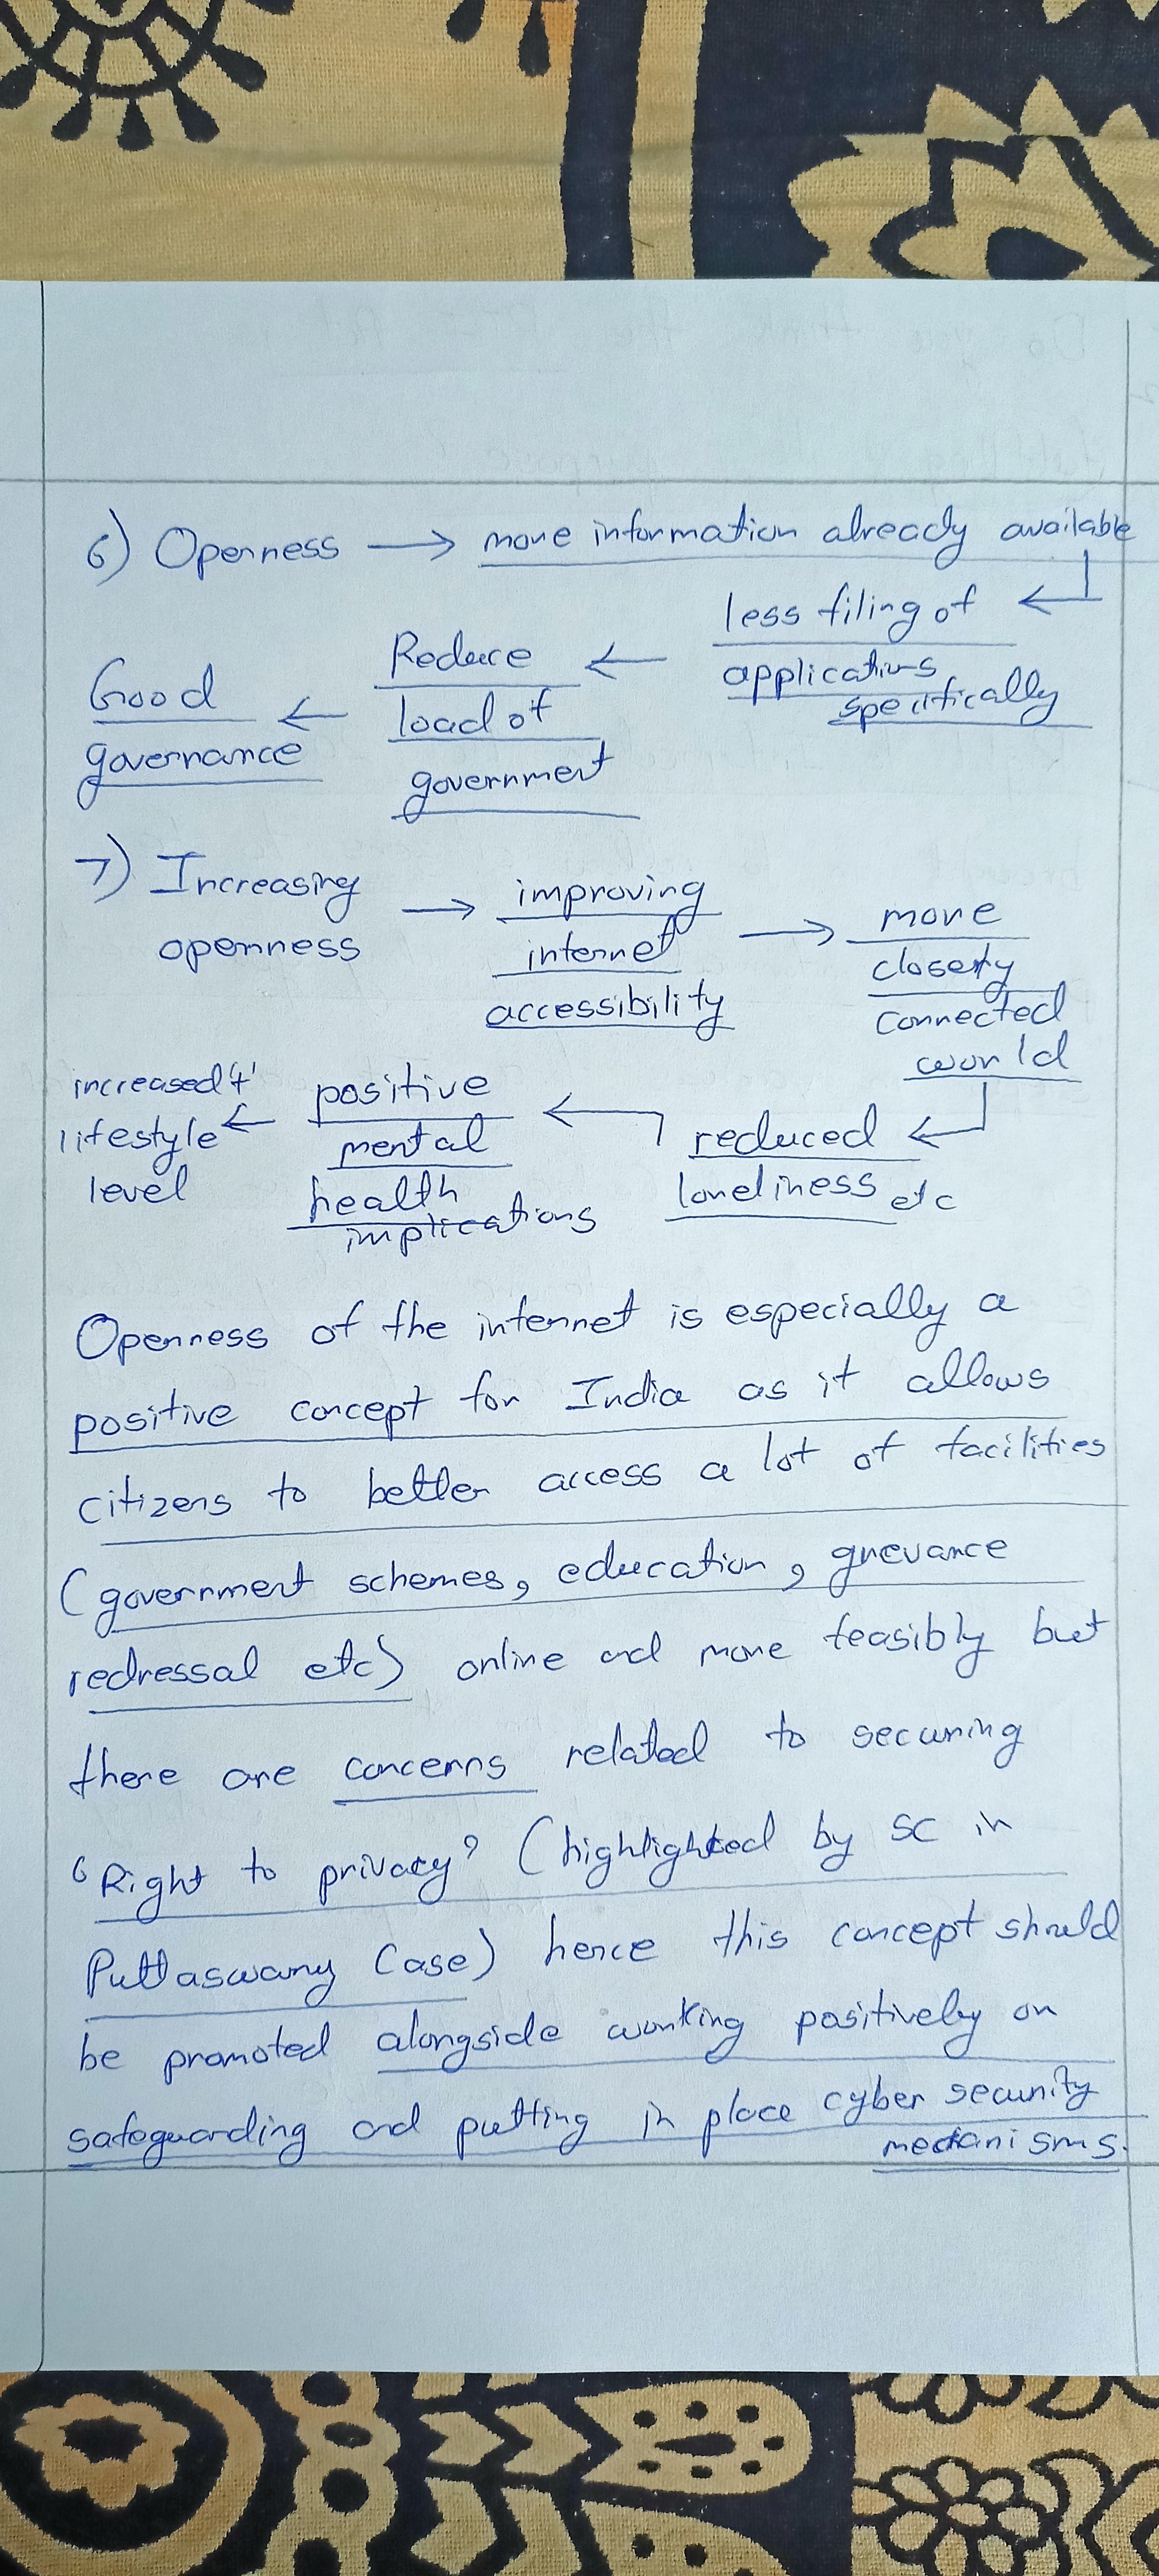 6) Openness → more information already available
less filing of
applications
specifically
←
Reduce
load of
government
←
Good
governance
7) Increasing
openness
→
improving
internet
accessibility
→
more
closely
connected
world
reduced
loneliness etc
←
positive
mental
health
implications
←
increased
lifestyle
level
Openness of the internet is especially a
positive concept for India as it allows
citizens to better access a lot of facilities
(government schemes, education, grievance
redressal etc) online and more feasibly but
there are concerns related to securing
'Right to privacy' (highlighted by SC in
Puttaswamy Case) hence this concept should
be promoted alongside working positively on
safeguarding and putting in place cyber security
mechanisms.